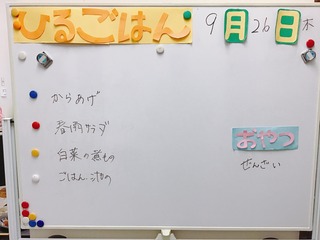 ひるごはん
9月26日木
からあげ
春雨サラダ
白菜の煮もの
ごはん、汁もの
おやつ
ぜんざい